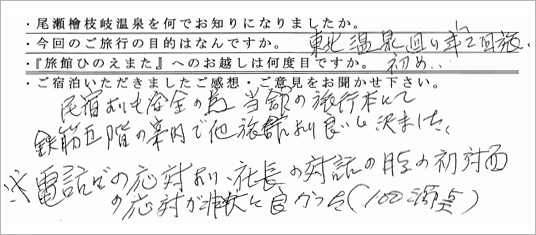 ・尾瀬檜枝岐温泉を何でお知りになりましたか。
・今回のご旅行の目的はなんですか。 東北温泉回り第2回旅
・『旅館ひのえまた』へのお越しは何度目ですか。 初め..
・ご宿泊いただきましたご感想・ご意見をお聞かせ下さい。
民宿よりも安全の為 当館の旅行本にて
鉄筋五階の案内で他旅館より良いと決ました、
※電話での応対より、社長の対話の時の初対面
の応対が非常に良かった(100満点)